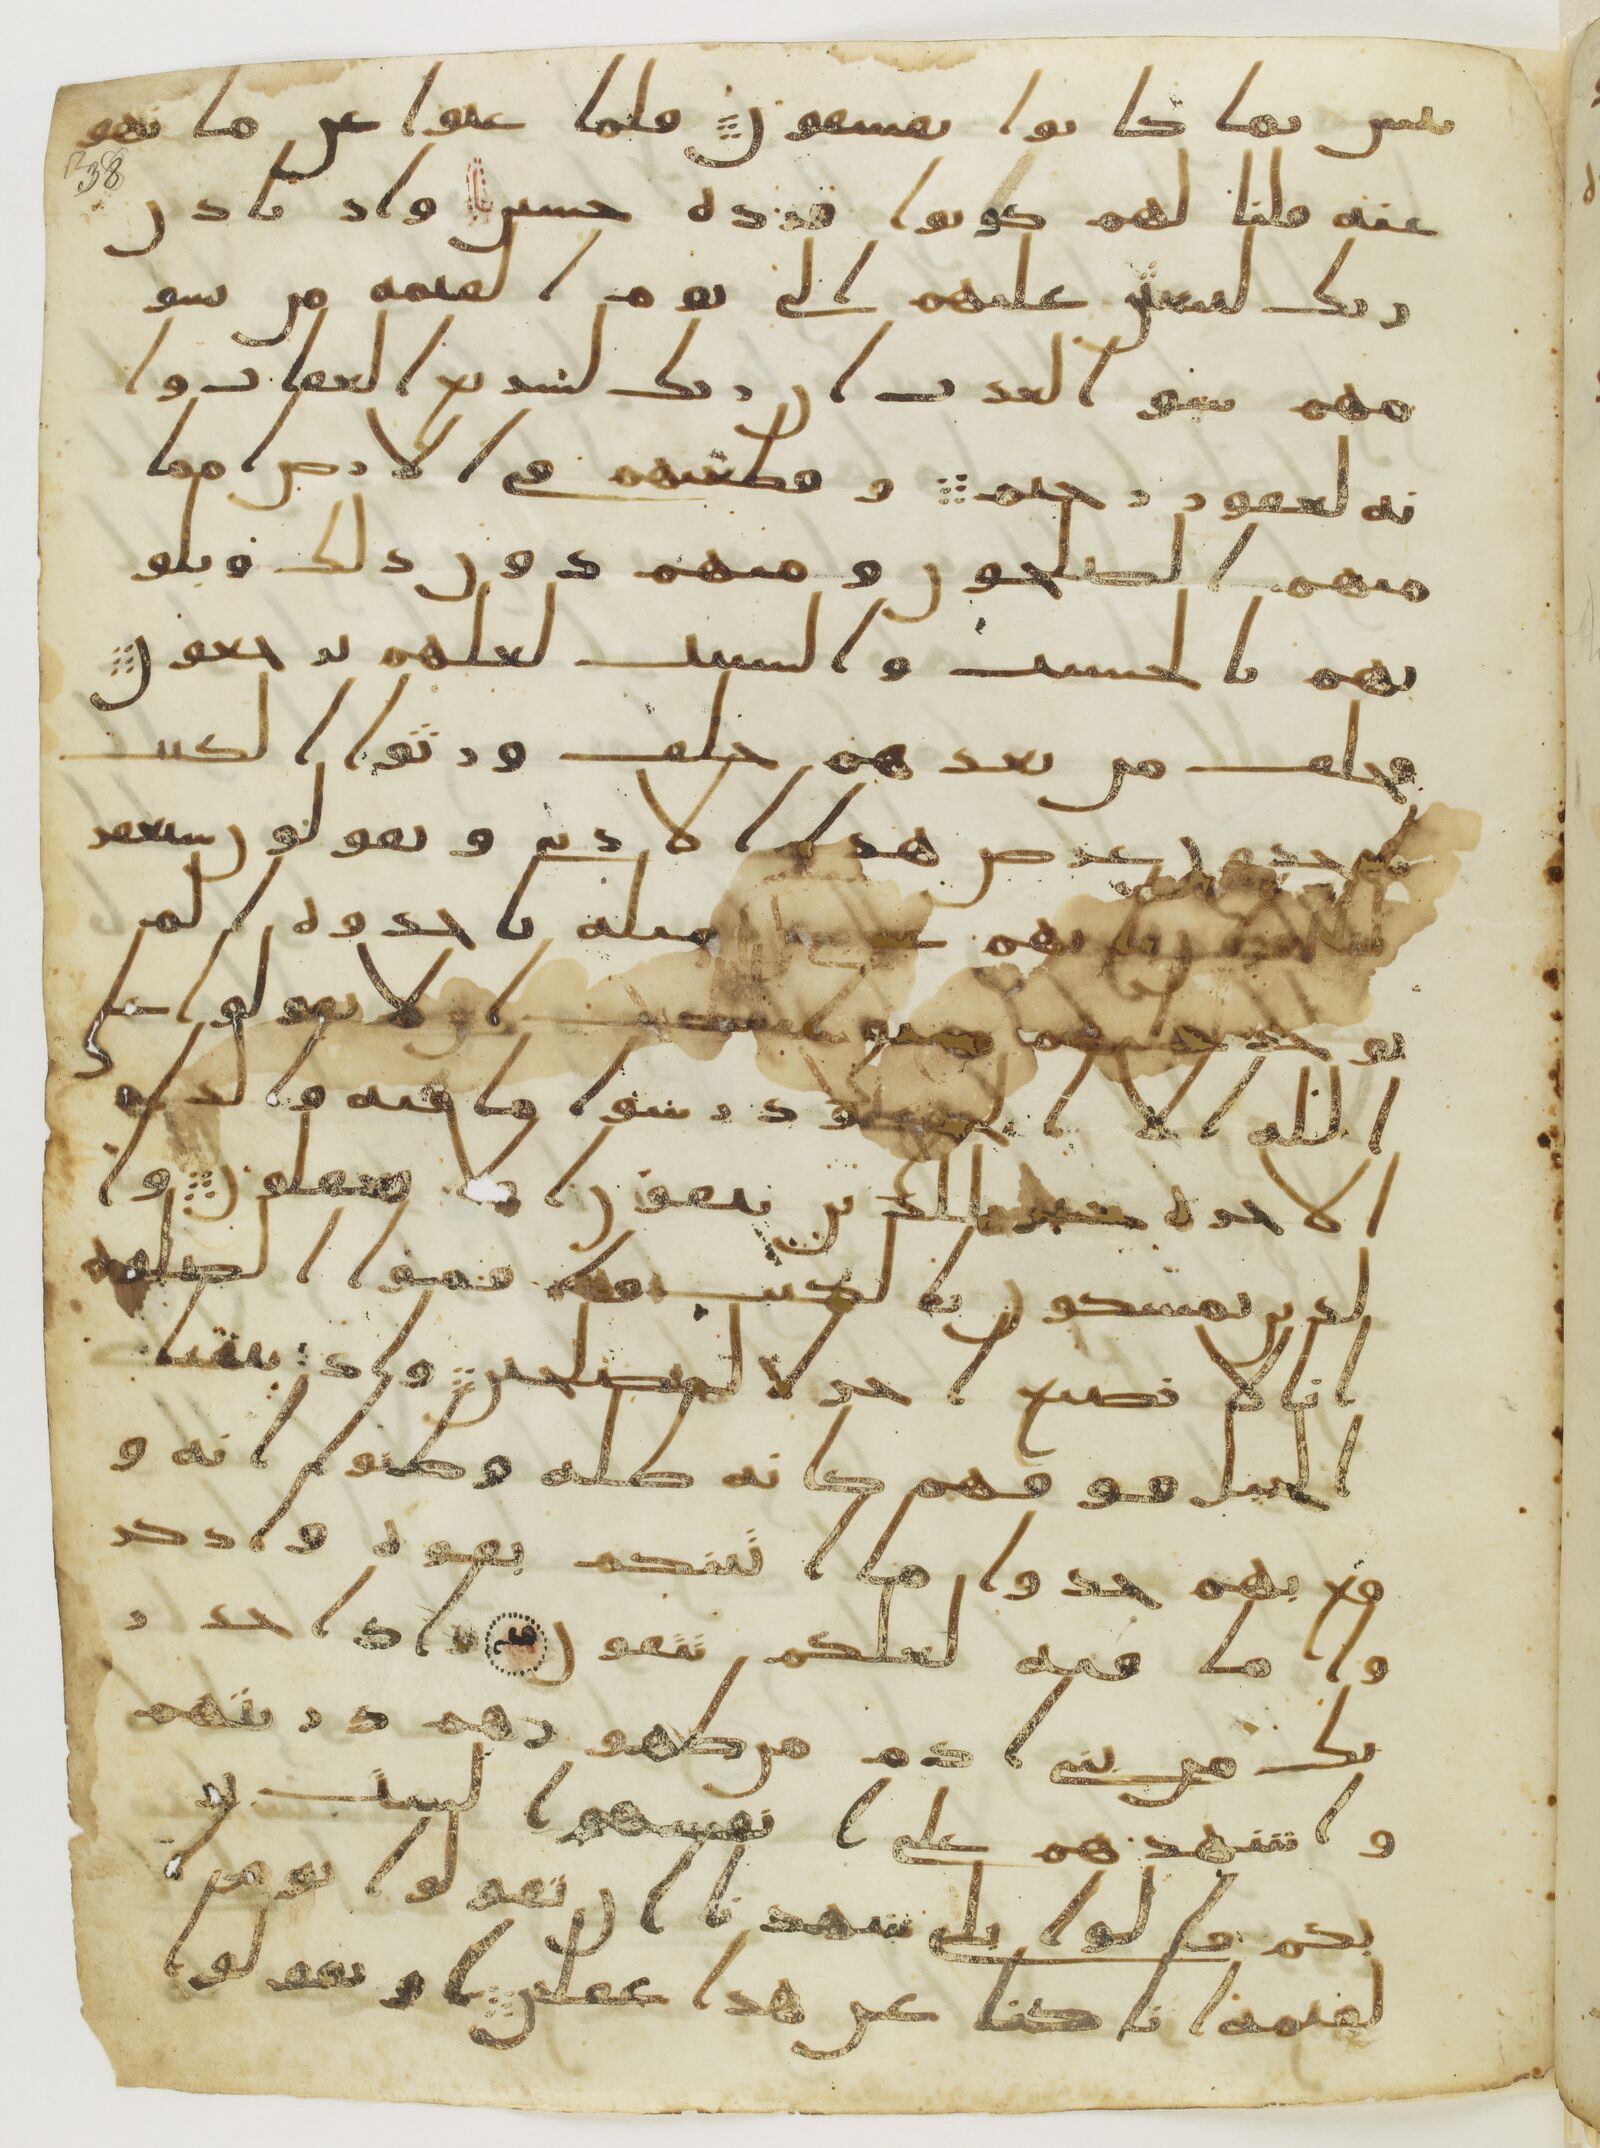 بيس بما كانوا يفسقون فلما عتوا عن ما نهو
عنه قلنا لهم كونوا قرده خسين واذ تاذن
ربك ليبعثن عليهم الى يوم القيمه من يسو
مهم سو العذب ان ربك لشديد العقاب وا
نه لغفور رحيم وقطعنهم في الارض امما
منهم الصلحون ومنهم دون ذلك وبلو
نهم بالحسنت والسيت لعلهم يرجعون
فخلف من بعدهم خلف ورثوا الكتب
ياخذون عرض هذا الادنى ويقولون سيغفر
لنا وان ياتهم عرض مثله ياخذوه الم
يوخذ عليهم ميثق الكتب ان لا يقولوا على
الله الا الحق ودرسوا ما فيه والدار
الاخره خير للذين يتقون افلا تعقلون وا
لذين يمسكون بالكتب واقموا الصلوه
انا لا نضيع اجر المصلحين واذ نتقنا
الجبل فوقهم كانه ظله وظنوا انه و
قع بهم خذوا ما اتينكم بقوه واذكر
وا ما فيه لعلكم تتقون واذ اخذ ر
بك من بني ادم من ظهورهم ذريتهم
واشهدهم على انفسهم الست بر
بكم قالوا بلى شهدنا ان تقولوا يوم ا
لقيمه انا كنا عن هذا غفلين او تقولوا